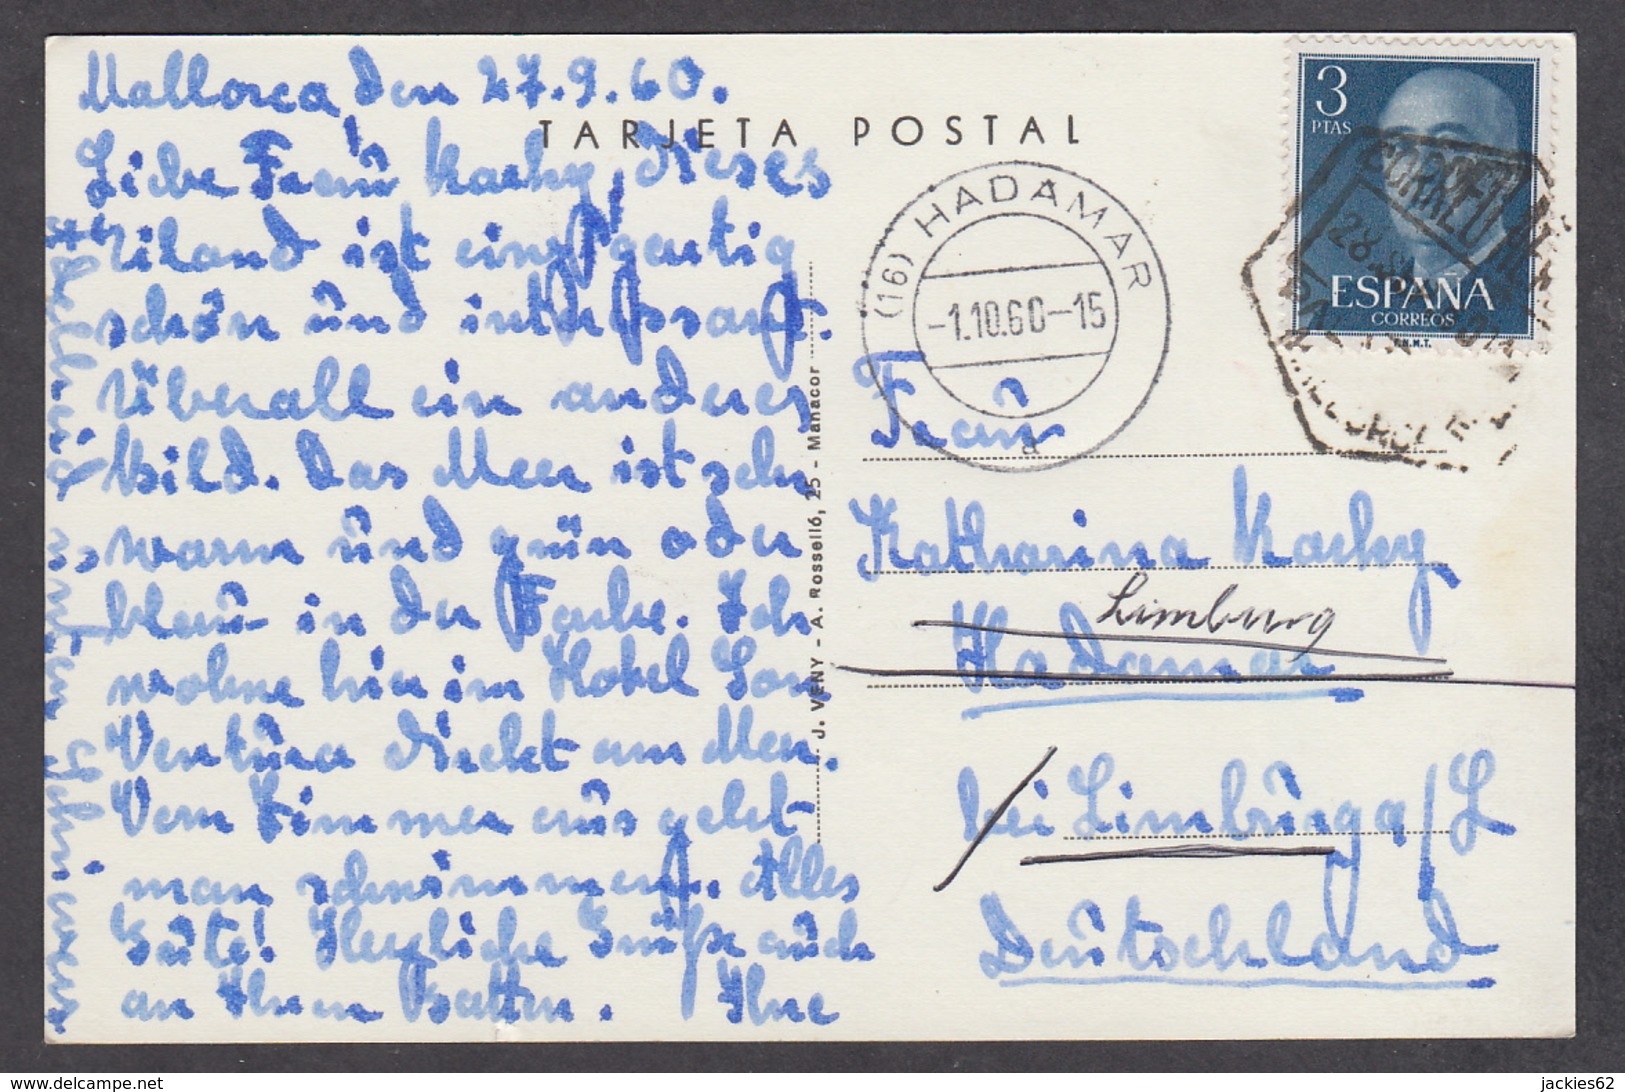 Mallorca, den 27.9.60.
TARJETA POSTAL
Liebe Frau Kachy, dieses
Eiland ist einzigartig
schön und interessant.
Überall ein anderes
Bild. Das Meer ist sehr
warm und grün oder
blau in der Farbe. Ich
wohne hier im Hotel Son
Ventura direkt am Meer.
Vom Zimmer aus geht
man schwimmen. Alles
Gute! Herzliche Grüße auch
an Ihren Gatten. Ihre
J. VENY - A. Rosselló, 25 - Manacor
(16) HADAMAR
-1.10.60-15
a
3
PTAS
ESPAÑA
CORREOS
F.N.M.T.
CORREO
28
Frau
Katharina Kachy
Limburg
Hadamar
bei Limburg a/L
Deutschland
jackies62
delcampe.net